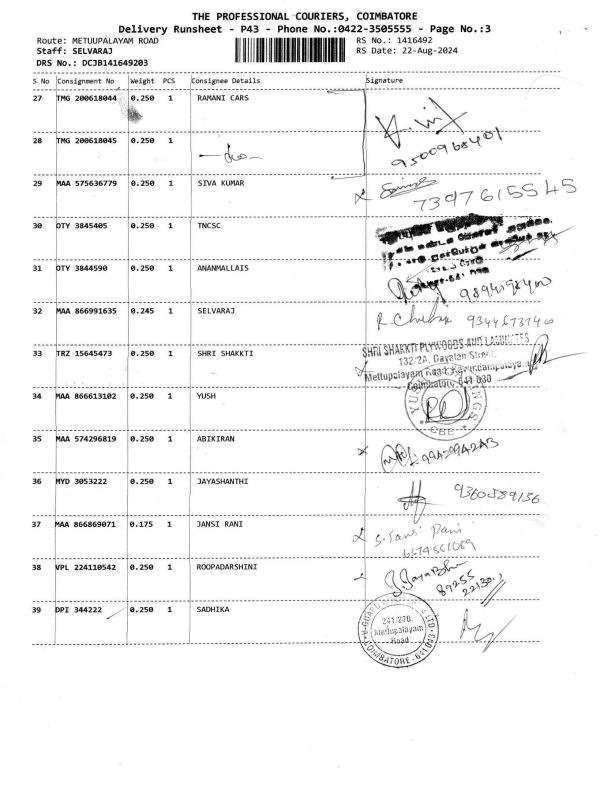 THE PROFESSIONAL COURIERS, COIMBATORE
Delivery Runsheet - P43 - Phone No.:0422-3505555 - Page No.:3
Route: METUUPALAYAM ROAD RS No.: 1416492
Staff: SELVARAJ RS Date: 22-Aug-2024
DRS No.: DCJB141649203
S No Consignment No Weight PCS Consignee Details Signature
27 TMG 200618044 0.250 1 RAMANI CARS
28 TMG 200618045 0.250 1
9500968401
29 MAA 575636779 0.250 1 SIVA KUMAR
7397615545
30 OTY 3845405 0.250 1 TNCSC
31 OTY 3844590 0.250 1 ANANMALLAIS
32 MAA 866991635 0.245 1 SELVARAJ
9344673740
33 TRZ 15645473 0.250 1 SHRI SHAKKTI
SHRI SHAKKTI PLYWOODS AND LAMINATES
132/2A, Dayalan Street,
Mettupalayam Road, Kavundampalayam
Coimbatore-641 030
34 MAA 866613102 0.250 1 YUSH
CBE
35 MAA 574296819 0.250 1 ABIKIRAN
36 MYD 3053222 0.250 1 JAYASHANTHI
9360589136
37 MAA 866869071 0.175 1 JANSI RANI
S. Jansi Rani
38 VPL 224110542 0.250 1 ROOPADARSHINI
89255
39 DPI 344222 0.250 1 SADHIKA
241/270,
Mettupalayam
Road
COIMBATORE-641043